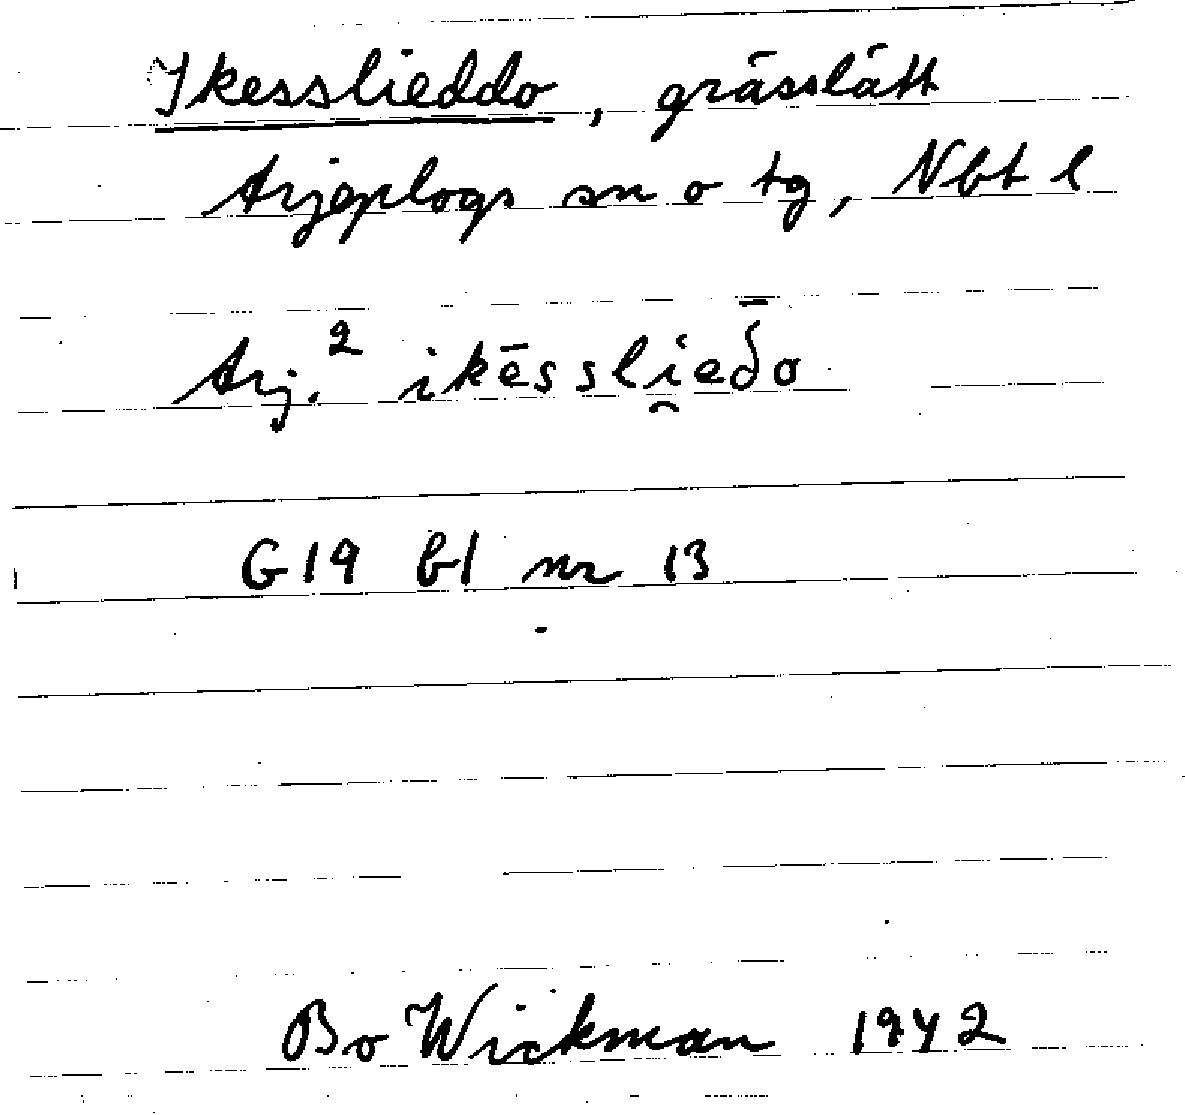 Ikesslieddo, grässlått
Arjeplogs sn o tg, Nbt l
Arj.² ikēssli̯eδ̄o
G19 bl nr 13
Bo Wickman 1942